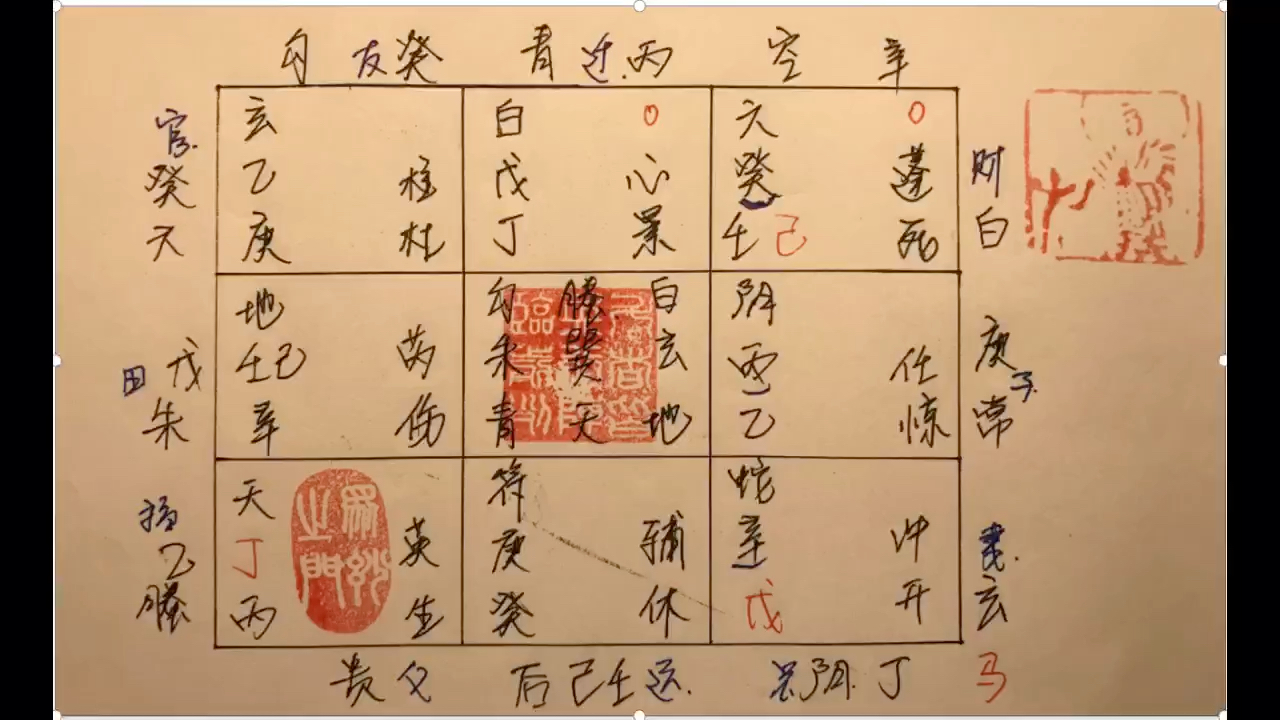 勾 友 癸 青 迁 丙 空 辛
官 玄 白 〇 六 〇
癸 乙 柱 戊 心 癸 蓬 财
天 庚 杜 丁 景 壬 己 死 白
地 勾 螣 白 阴
戊 壬己 芮 朱 玄 丙 任 庚
田 子
朱 辛 伤 青 天 地 乙 惊 常
天 符 蛇
丁 英 庚 辅 辛 冲
乙 丙 生 癸 休 戊 开 玄
螣
贵 父 后 己 壬 运 阴 丁 马